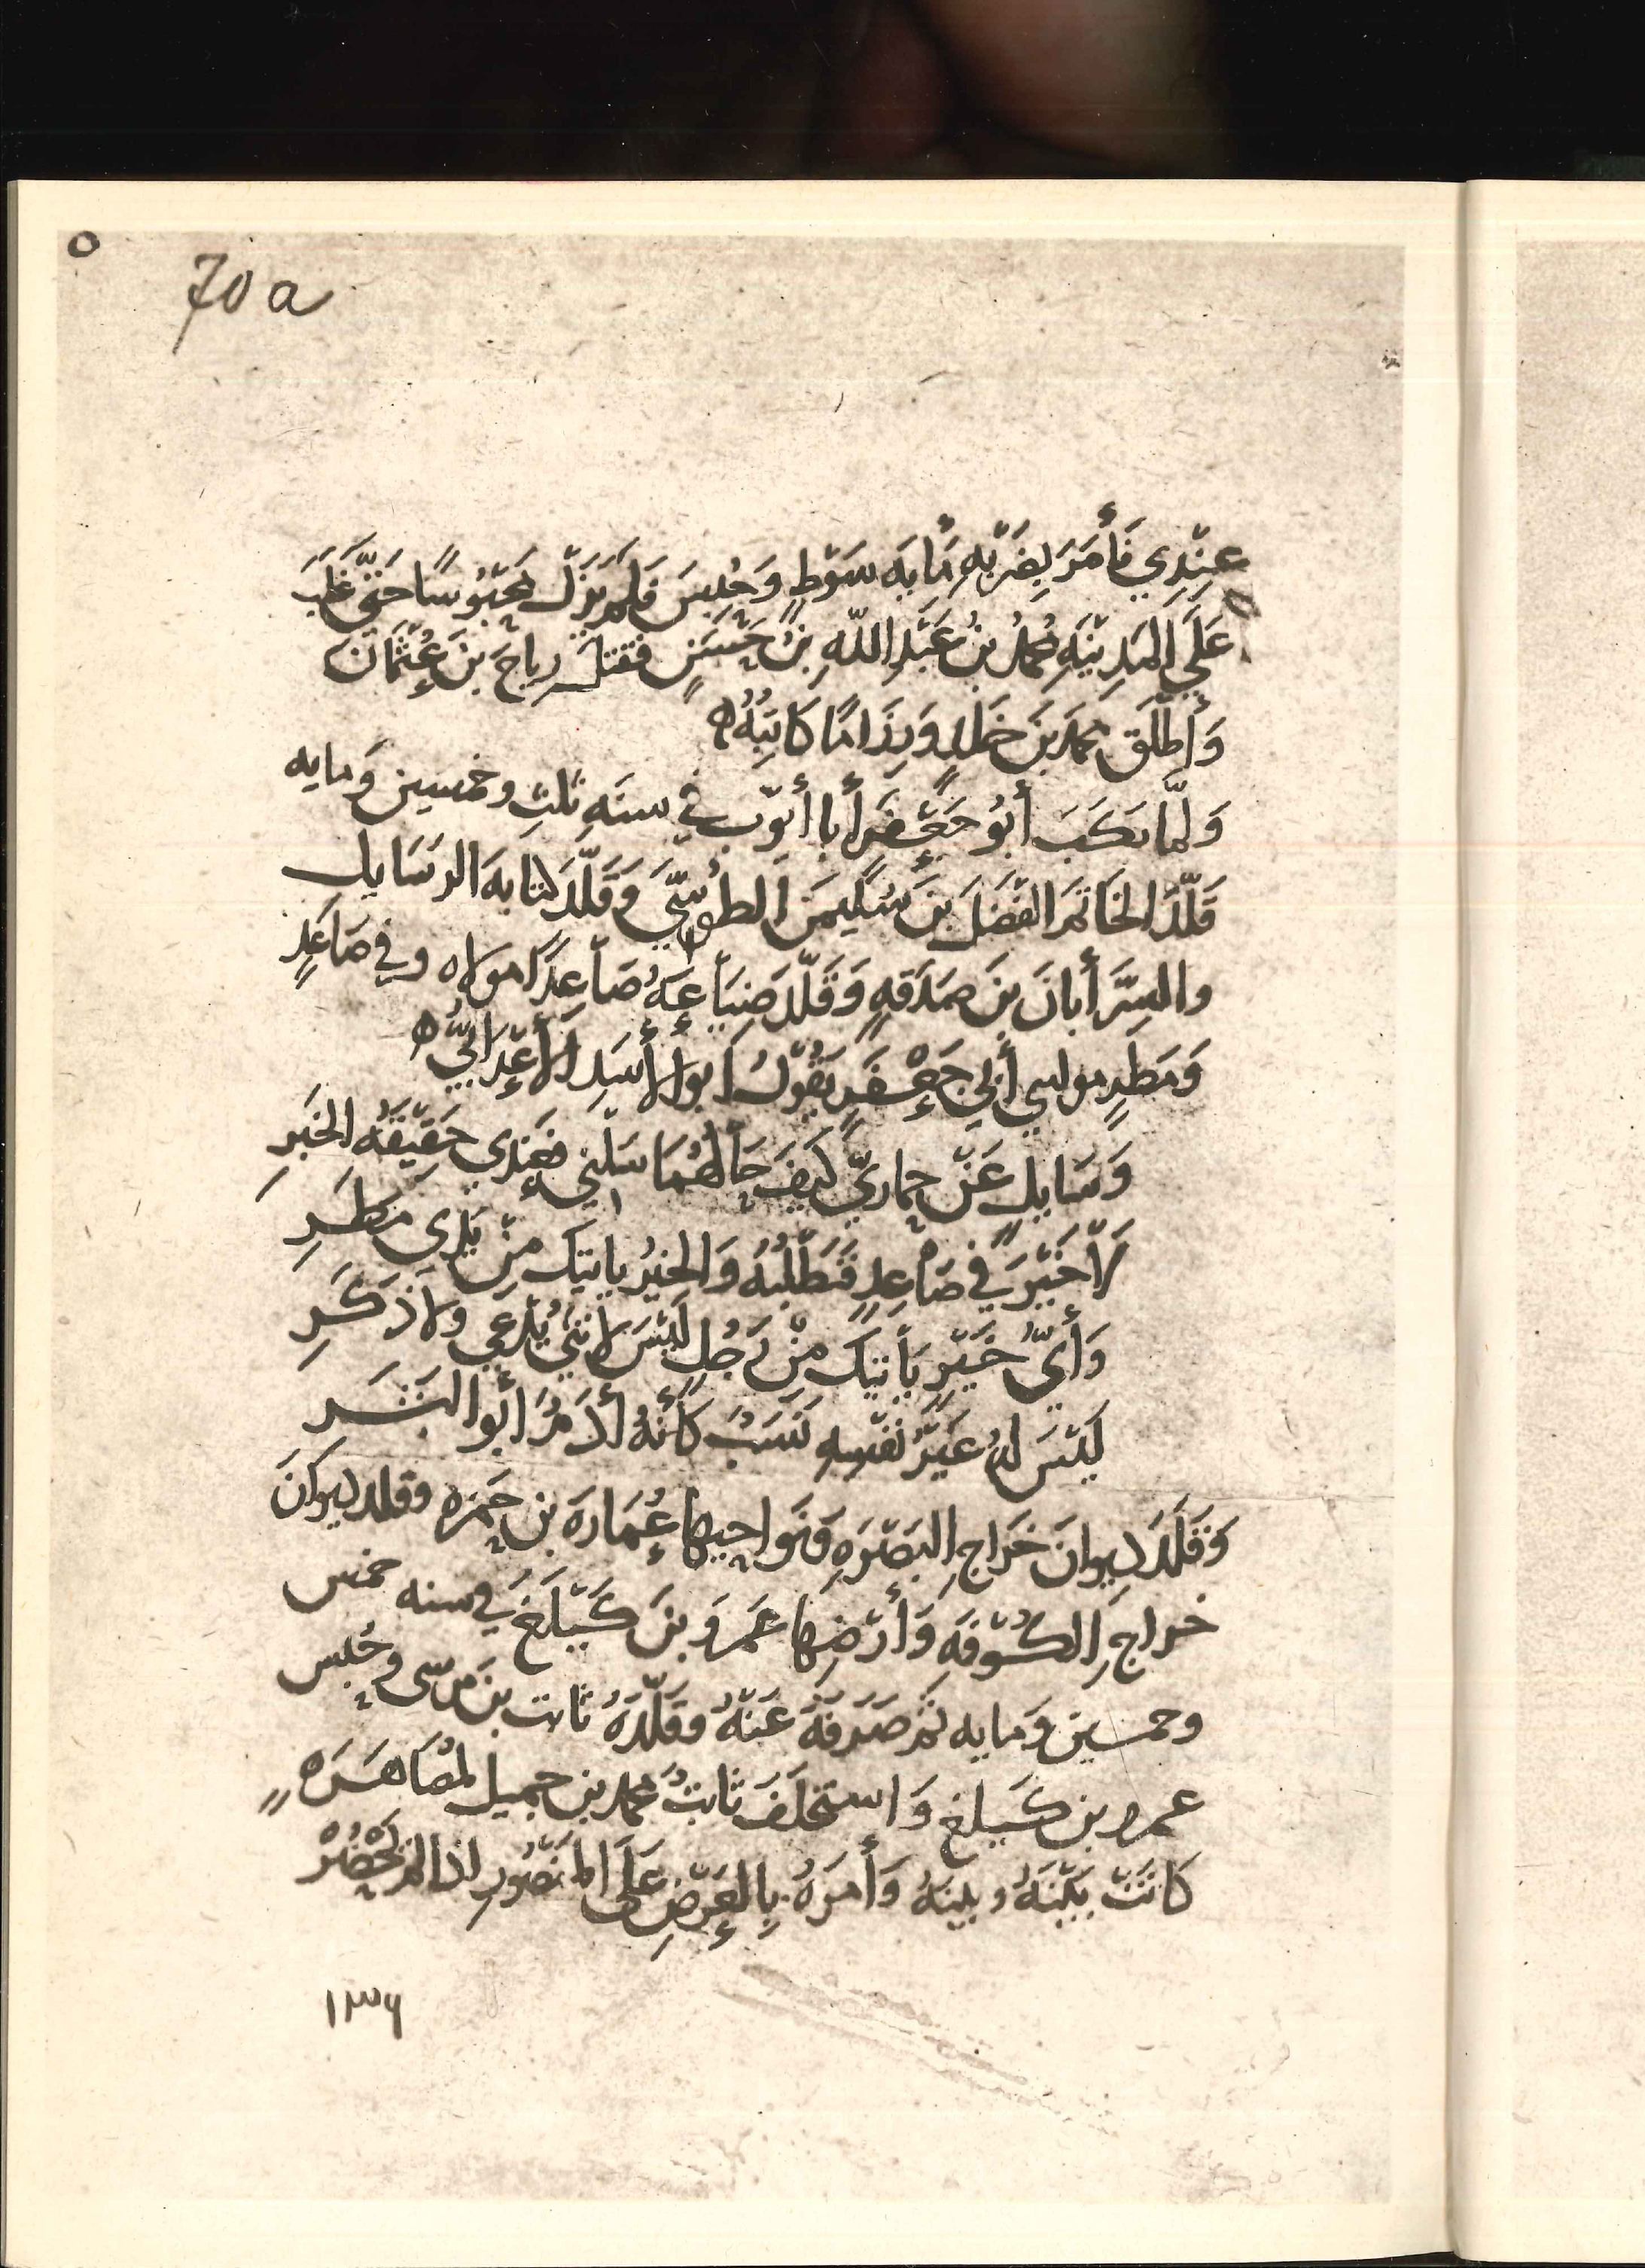 70 a
عِنْدِي فَأَمَرَ بِضَرْبِهِ مَايَه سَوْطٍ وَحُبِسَ فَلَمْ يَزَلْ مَحْبُوسًا حَتَّى غَلَبَ
عَلَى الْمَدِيْنَهِ مُحَمَّدُ بْنُ عَبْدِ اللهِ بْنُ حَسَنٍ فقتلَ رِياحَ بْنَ عُثْمَانَ
وَأَطْلَقَ محمدَ بنَ خَالِدٍ وَرِزَامًا كَاتِبَهُ ه
وَلَمَّا نكَبَ أَبُو جَعْفَرٍ أَبا أيّوبَ فِي سنَهِ ثلثٍ وخمسِين وَمايه
قَلَّدَ الخَاتَمَ الفَضْلَ بنَ سُلَيمنَ الطُوسِيَّ وَقَلَّدَ كِتَابهَ الرسَايل
والسِرَّ أَبانَ بنَ صَدَقهٍ وَقَلَّدَ ضِيَاعِهُ صَاعِدًا مولاه وفي صَاعِدٍ
وَمَطَرٍ مولىى أَبِي جَعْفَرٍ يَقُولُ أبو الأَسَدِ الأَعْرَابيُّ ه
وَسَايلٍ عَنْ حِماريَّ كَيفَ حَالُهُمَا سَلْنِي فعِندِي حَقِيْقَهُ الخَبَرِ
لَا خَيْرَ فِي صَاعِدٍ فَتَطْلُبُهُ وَالخيْرُ ياتيكَ مِنْ يَدَي مَطَرِ
وَأَيُّ خَيْرٍ يَأْتيكَ مِنْ رَجُلٍ لَيْسَ لِانْثَى يُدْعى ولا ذكَرِ
لَيْسَ لهُ غَيْرُ نَفْسِهِ نَسَبٌ كَأَنَّهُ أَدَمُ أَبُو البَشَرِ
وَقَلَّدَ دِيوانَ خَرَاجِ البَصْرَهِ وَنَوَاحِيهَا عُمَارَهَ بن حَمزه وقلد ديوانَ
خراجِ الكُوْفَهِ وَأَرْضِهَا عَمرَو بنَ كَيْلَغَ في سنه خمس
وخمسين وَمايه ثمَّ صَرَفَهُ عَنْهُ وقَلَّدَهُ ثابت بنَ موسى وحُبِس
عمرو بن كَيلغ وَاستخلَفَ ثابتُ محمد بن جميل لمُصَاهَرَهٍ
كَانَتْ بَيْنَهُ وبينهُ وَأَمرَهُ بِالعَرْضِ عَلَى المنصُورِ اذا لم يَحْضُرْ
١٣٩